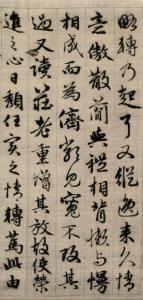 略轉乃起耳又縱逸来久情
意傲散簡與禮相背懶與慢
相成而為儕類見寬不攻其
過又讀莊老重增其放故使榮
進之心日頹任實之情轉篤此由